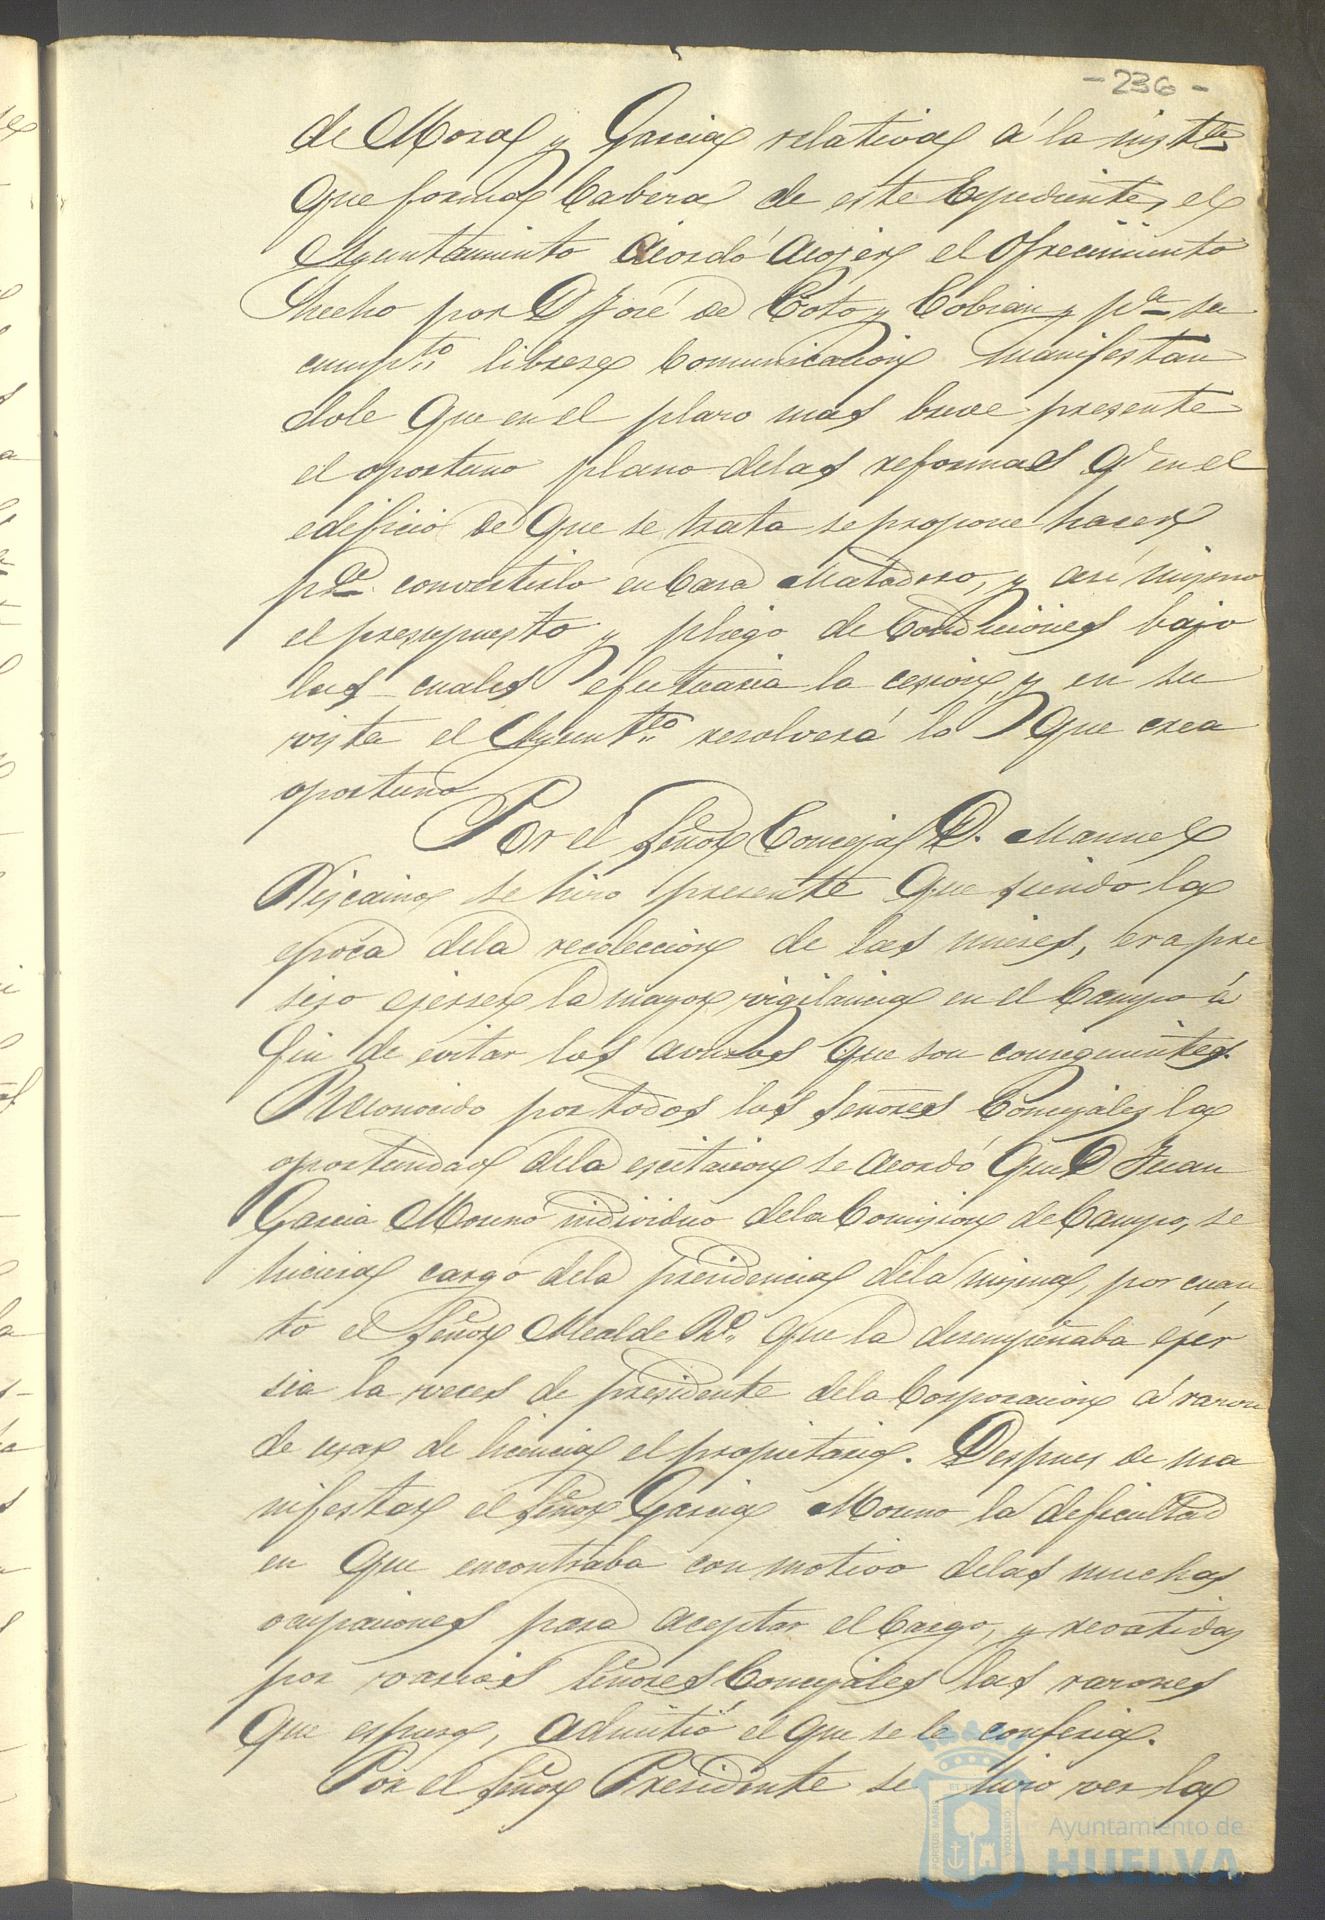 - 236 -
de Mora y Garcia relativa á la inst.ª
que forma Cabeza de este Expediente, el
Ayuntamiento acordó acojer el Ofrecimiento
hecho por D José de Coto y Cobian y p.ª su
cumpt.º librese Comunicacion manifestan
dole que en el plazo mas breve presente
el oportuno plano delas reformas q.e en el
edificio de que se trata se propone hacer
p.ª convertirlo en Casa Matadero, y asi mismo
el presupuesto y pliego de Condiciones bajo
las cuales efectuaria la cesion y en su
vista el Ayunt.º resolverá lo que crea
oportuno
Por el Señor Concejal D. Manuel
Viscaino se hizo presente que siendo la
epoca dela recoleccion de las mieses, era pre
siso ejerser la mayor vigilancia en el Campo á
fin de evitar los abusos que son consiguientes.
Reconocido por todos los Señores Concejales la
oportunidad dela escitacion se acordó que D Juan
Garcia Moreno individuo dela Comision de Campo, se
hiciera cargo dela presidencia dela misma, por cuan
to el Señor Alcalde 2.º que la desempeñaba ejer
sia la veces de presidente dela Corporacion á razon
de usar de licencia el propietario. Despues de ma
nifestar el Señor Garcia Moreno la deficultad
en que encontraba con motivo delas muchas
ocupaciones para aceptar el Cargo, y revatidas
por varios Señores Concejales las razones
que espuso, admitió el que se le conferia.
Por el Señor Presidente se hizo ver la
Ayuntamiento de
HUELVA